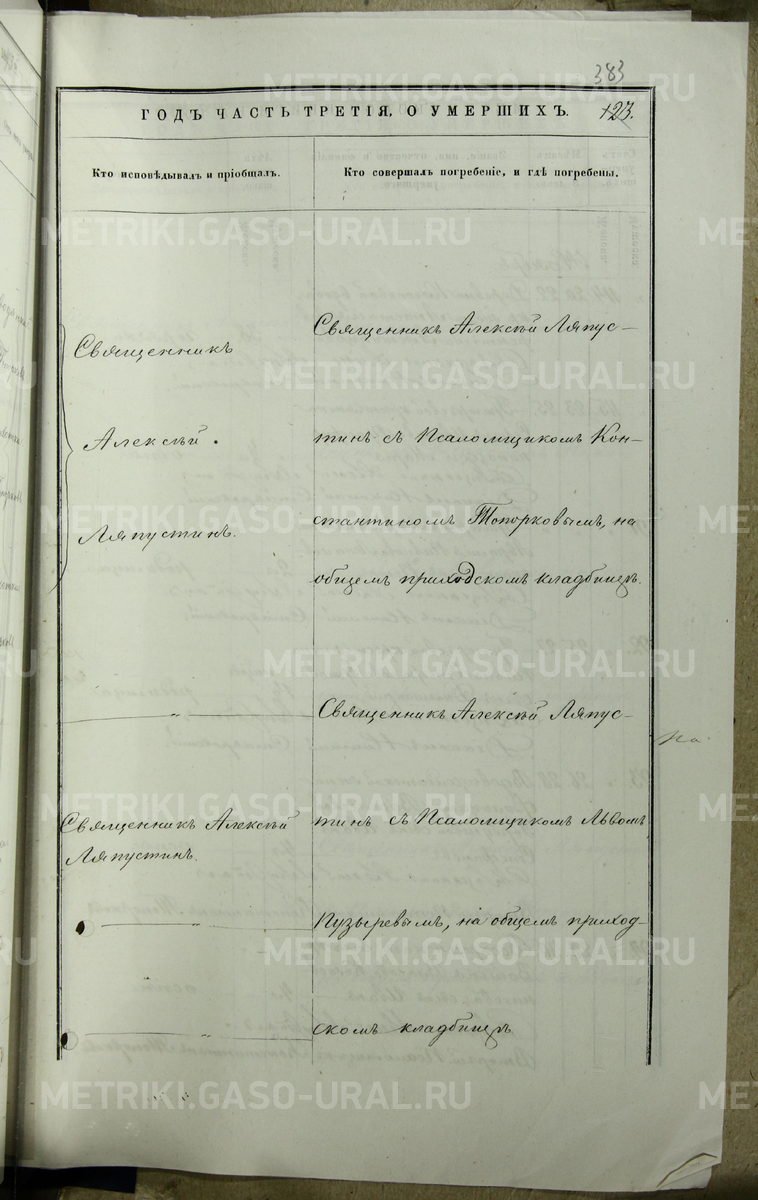 383
ГОДЪ ЧАСТЬ ТРЕТІЯ, О УМЕРШИХЪ. 123.
Кто исповѣдывалъ и пріобщалъ.
Кто совершалъ погребеніе, и гдѣ погребены.
Священникъ
Алексѣй
Ляпустинъ.
Священникъ Алексѣй Ляпус-
тинъ съ Псаломщикомъ Кон-
стантиномъ Топорковымъ, на
общемъ приходскомъ кладбищѣ.
— „ —
Священникъ Алексѣй Ляпус-
Священникъ Алексѣй
Ляпустинъ.
тинъ съ Псаломщикомъ Львомъ
— „ —
Пузыревымъ, на общемъ приход-
— „ —
скомъ кладбищѣ
METRIKI.GASO-URAL.RU